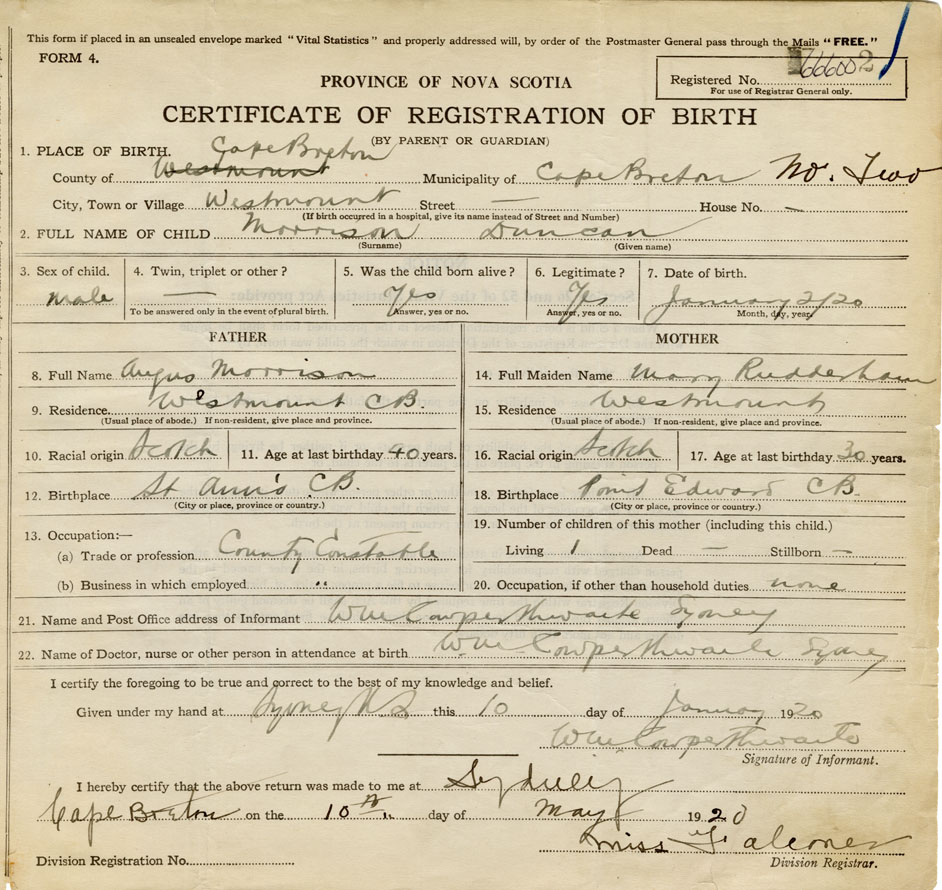 This form if placed in an unsealed envelope marked "Vital Statistics" and properly addressed will, by order of the Postmaster General pass through the Mails "FREE."
FORM 4.
PROVINCE OF NOVA SCOTIA
Registered No. 666002
For use of Registrar General only.
CERTIFICATE OF REGISTRATION OF BIRTH
(BY PARENT OR GUARDIAN)
1. PLACE OF BIRTH. Cape Breton
County of Westmount Municipality of Cape Breton No. Two
City, Town or Village Westmount Street — House No. —
(If birth occurred in a hospital, give its name instead of Street and Number)
2. FULL NAME OF CHILD Morrison Duncan
(Surname) (Given name)
3. Sex of child. 4. Twin, triplet or other? 5. Was the child born alive? 6. Legitimate? 7. Date of birth.
male — Yes Yes January 2/20
To be answered only in the event of plural birth. Answer, yes or no. Answer, yes or no. Month, day, year.
FATHER MOTHER
8. Full Name Angus Morrison 14. Full Maiden Name Mary Rudderham
9. Residence. Westmount C.B. 15. Residence Westmount
(Usual place of abode.) If non-resident, give place and province. (Usual place of abode.) If non-resident, give place and province.
10. Racial origin Scotch 11. Age at last birthday 40 years. 16. Racial origin Scotch 17. Age at last birthday 30 years.
12. Birthplace St Ann's C.B. 18. Birthplace Point Edward C.B.
(City or place, province or country.) (City or place, province or country.)
19. Number of children of this mother (including this child.)
13. Occupation:—
(a) Trade or profession County Constable Living 1 Dead — Stillborn —
(b) Business in which employed " 20. Occupation, if other than household duties none
21. Name and Post Office address of Informant Wm Cowperthwaite Sydney
22. Name of Doctor, nurse or other person in attendance at birth Wm Cowperthwaite Sydney
I certify the foregoing to be true and correct to the best of my knowledge and belief.
Given under my hand at Sydney N S this 10 day of January 1920
Wm Cowperthwaite
Signature of Informant.
I hereby certify that the above return was made to me at Sydney
Cape Breton on the 10th day of May 1920
Miss Falconer
Division Registration No. Division Registrar.